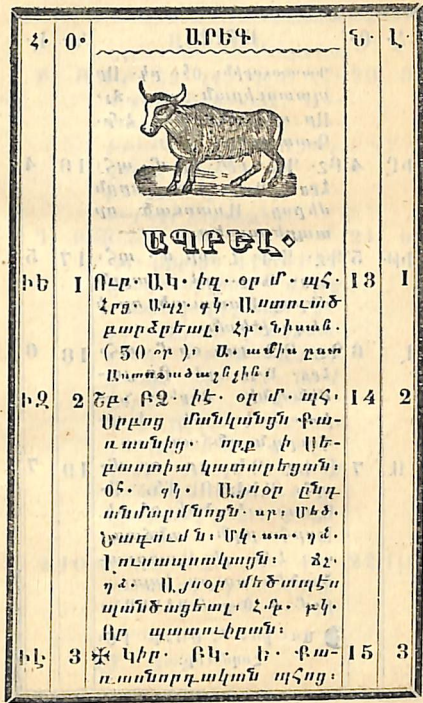 Հ· Օ· ԱՐԵԳ Ն· Լ·
ԱՊՐԵԼ·
ԻԵ 1 Ուր· ԱԿ· իղ· օր մ· պՀ· 13 1
Հրց· ԱպՀ· գկ· Աստուած
բարձրեալ։ Հր· Նիսան·
(30 օր)։ Ա· ամիս ըստ
Աստուածաշնչին։
ԻԶ 2 Շբ· ԲԶ· ԻԷ· օր մ· պՀ· 14 2
Սրբոց մանկանցն Քա-
ռասնից· որք ի Սե-
բաստիա կատարեցան։
օՀ· գկ· Այսօր ընդ
անմարմնոցն· սր· Մեծ·
Ծագումն։ Մկ· ստ· դձ·
Լուսապսակացն։ ՃՀ·
դձ· Այսօր մեծապէս
պանծացեալ։ Հմբ· բկ·
Որ պատուիրան։
ԻԷ 3 ✠ Կիր· ԲԿ· Ե· Քա- 15 3
ռասնորդական պՀոց։